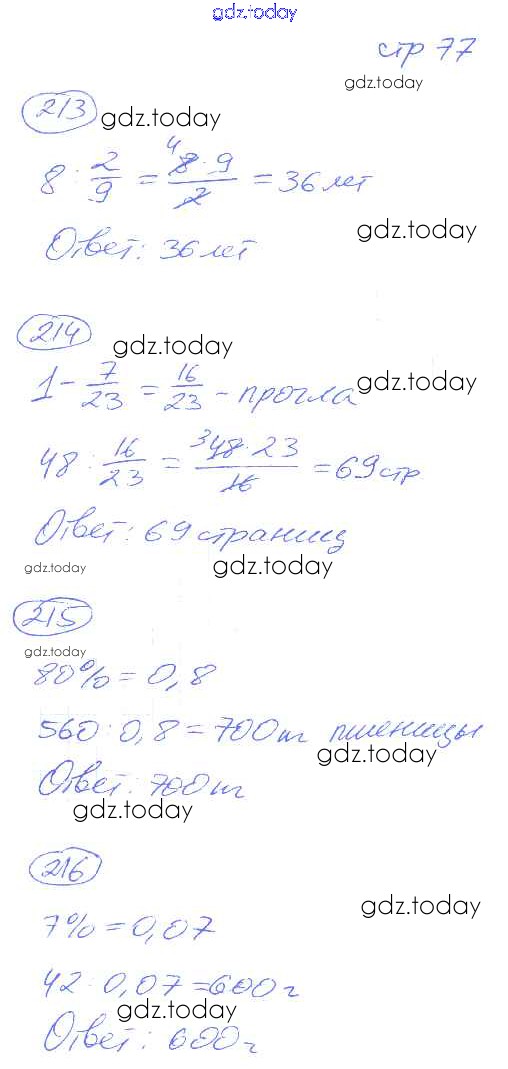 gdz.today
стр 77
gdz.today
213 gdz.today
8 : 2/9 = 8·9/2 = 36 лет
4
gdz.today
Ответ: 36 лет
214 gdz.today
1 - 7/23 = 16/23 - прочла
gdz.today
48 : 16/23 = 48·23/16 = 69 стр
3
Ответ: 69 страниц
gdz.today gdz.today
215
gdz.today
80% = 0,8
560 : 0,8 = 700 т пшеницы
gdz.today
Ответ: 700 т
gdz.today
216
gdz.today
7% = 0,07
42 : 0,07 = 600 г
gdz.today
Ответ: 600 г